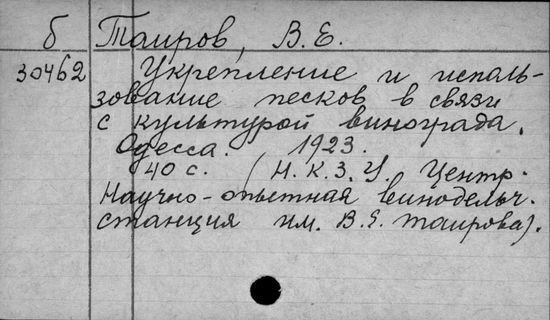 б Таиров, В.Е.
30462 Укрепление и исполь-
зование песков в связи
с культурой винограда.
Одесса. 1923.
40 с. (Н.К.З.У. Центр.
Научно-опытная винодельч.
станция им. В.Е. Таирова).